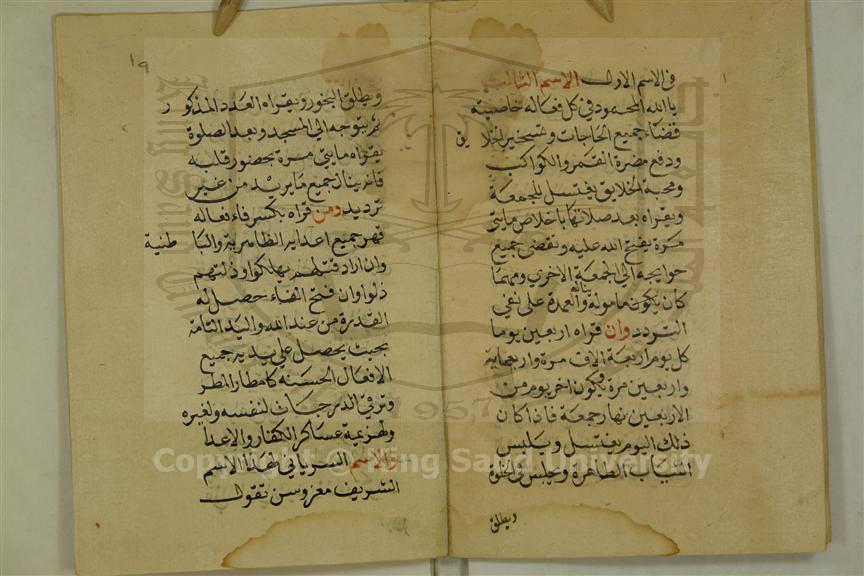 في الاسم الاول الاسم الثالث
يا الله المحمود في كل فعاله خاصيته
قضاء جميع الحاجات وتسخير الخلايق
ودفع مضرة القمر والكواكب
ومحبة الخلايق يغتسل للجمعة
ويقراه بعد صلاتها باخلاص مايتي
مرة يفتح الله عليه وتقضى جميع
حوايجه الى الجمعة الاخرى ومهما
كان يكون مامونه والعمدة على نفي
التردد وان قراه اربعين يوما
كل يوم اربعة الاف مرة واربعماية
واربعين مرة ويكون اخر يوم من
الاربعين نهار جمعة فاذا كان
ذلك اليوم يغتسل ويلبس
الثياب الطاهرة ويجلس في الخلوة
ويطلق
١٩
ويطلق البخور ويقراه العدد المذكور
ثم يتوجه الى المسجد وبعد الصلوة
يقراه مايتي مرة بحضور قلبه
فانه ينال جميع ما يريد من غير
ترديد ومن قراه بكسر فاء فعاله
قهر جميع اعدايه الظاهرية والباطنية
وان اراد قتلهم يهلكوا وذلتهم
ذلوا وان فتح الفاء حصل له
القدرة من عند الله واليد التامة
بحيث يحصل على يديه جميع
الافعال الحسنه كامطار المطر
وترقي الدرجات لنفسه ولغيره
ولهزيمة عساكر الكفار والاعدا
والاسم السرياني لهذا الاسم
الشريف معزوسن تقول
Copyright © King Saud University
1957